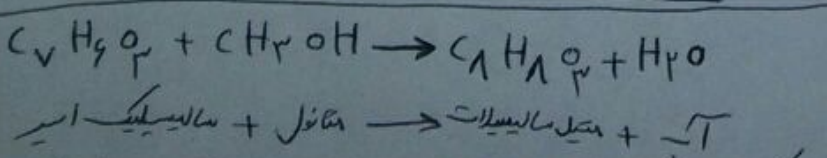 C۷H۶O۳ + CH۳OH → C۸H۸O۳ + H۲O
سالیسیلیک اسید + متانول → متیل سالیسیلات + آب